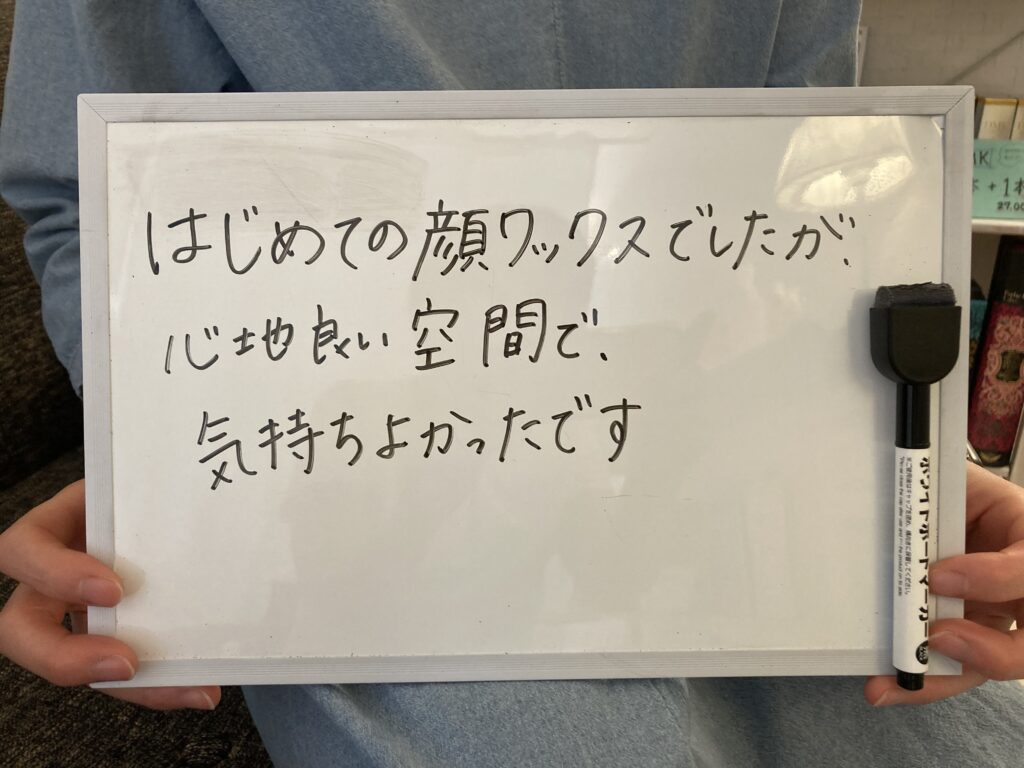 はじめての顔ワックスでしたが、
心地良い空間で、
気持ちよかったです
ホワイトボードマーカー
MK
+1本